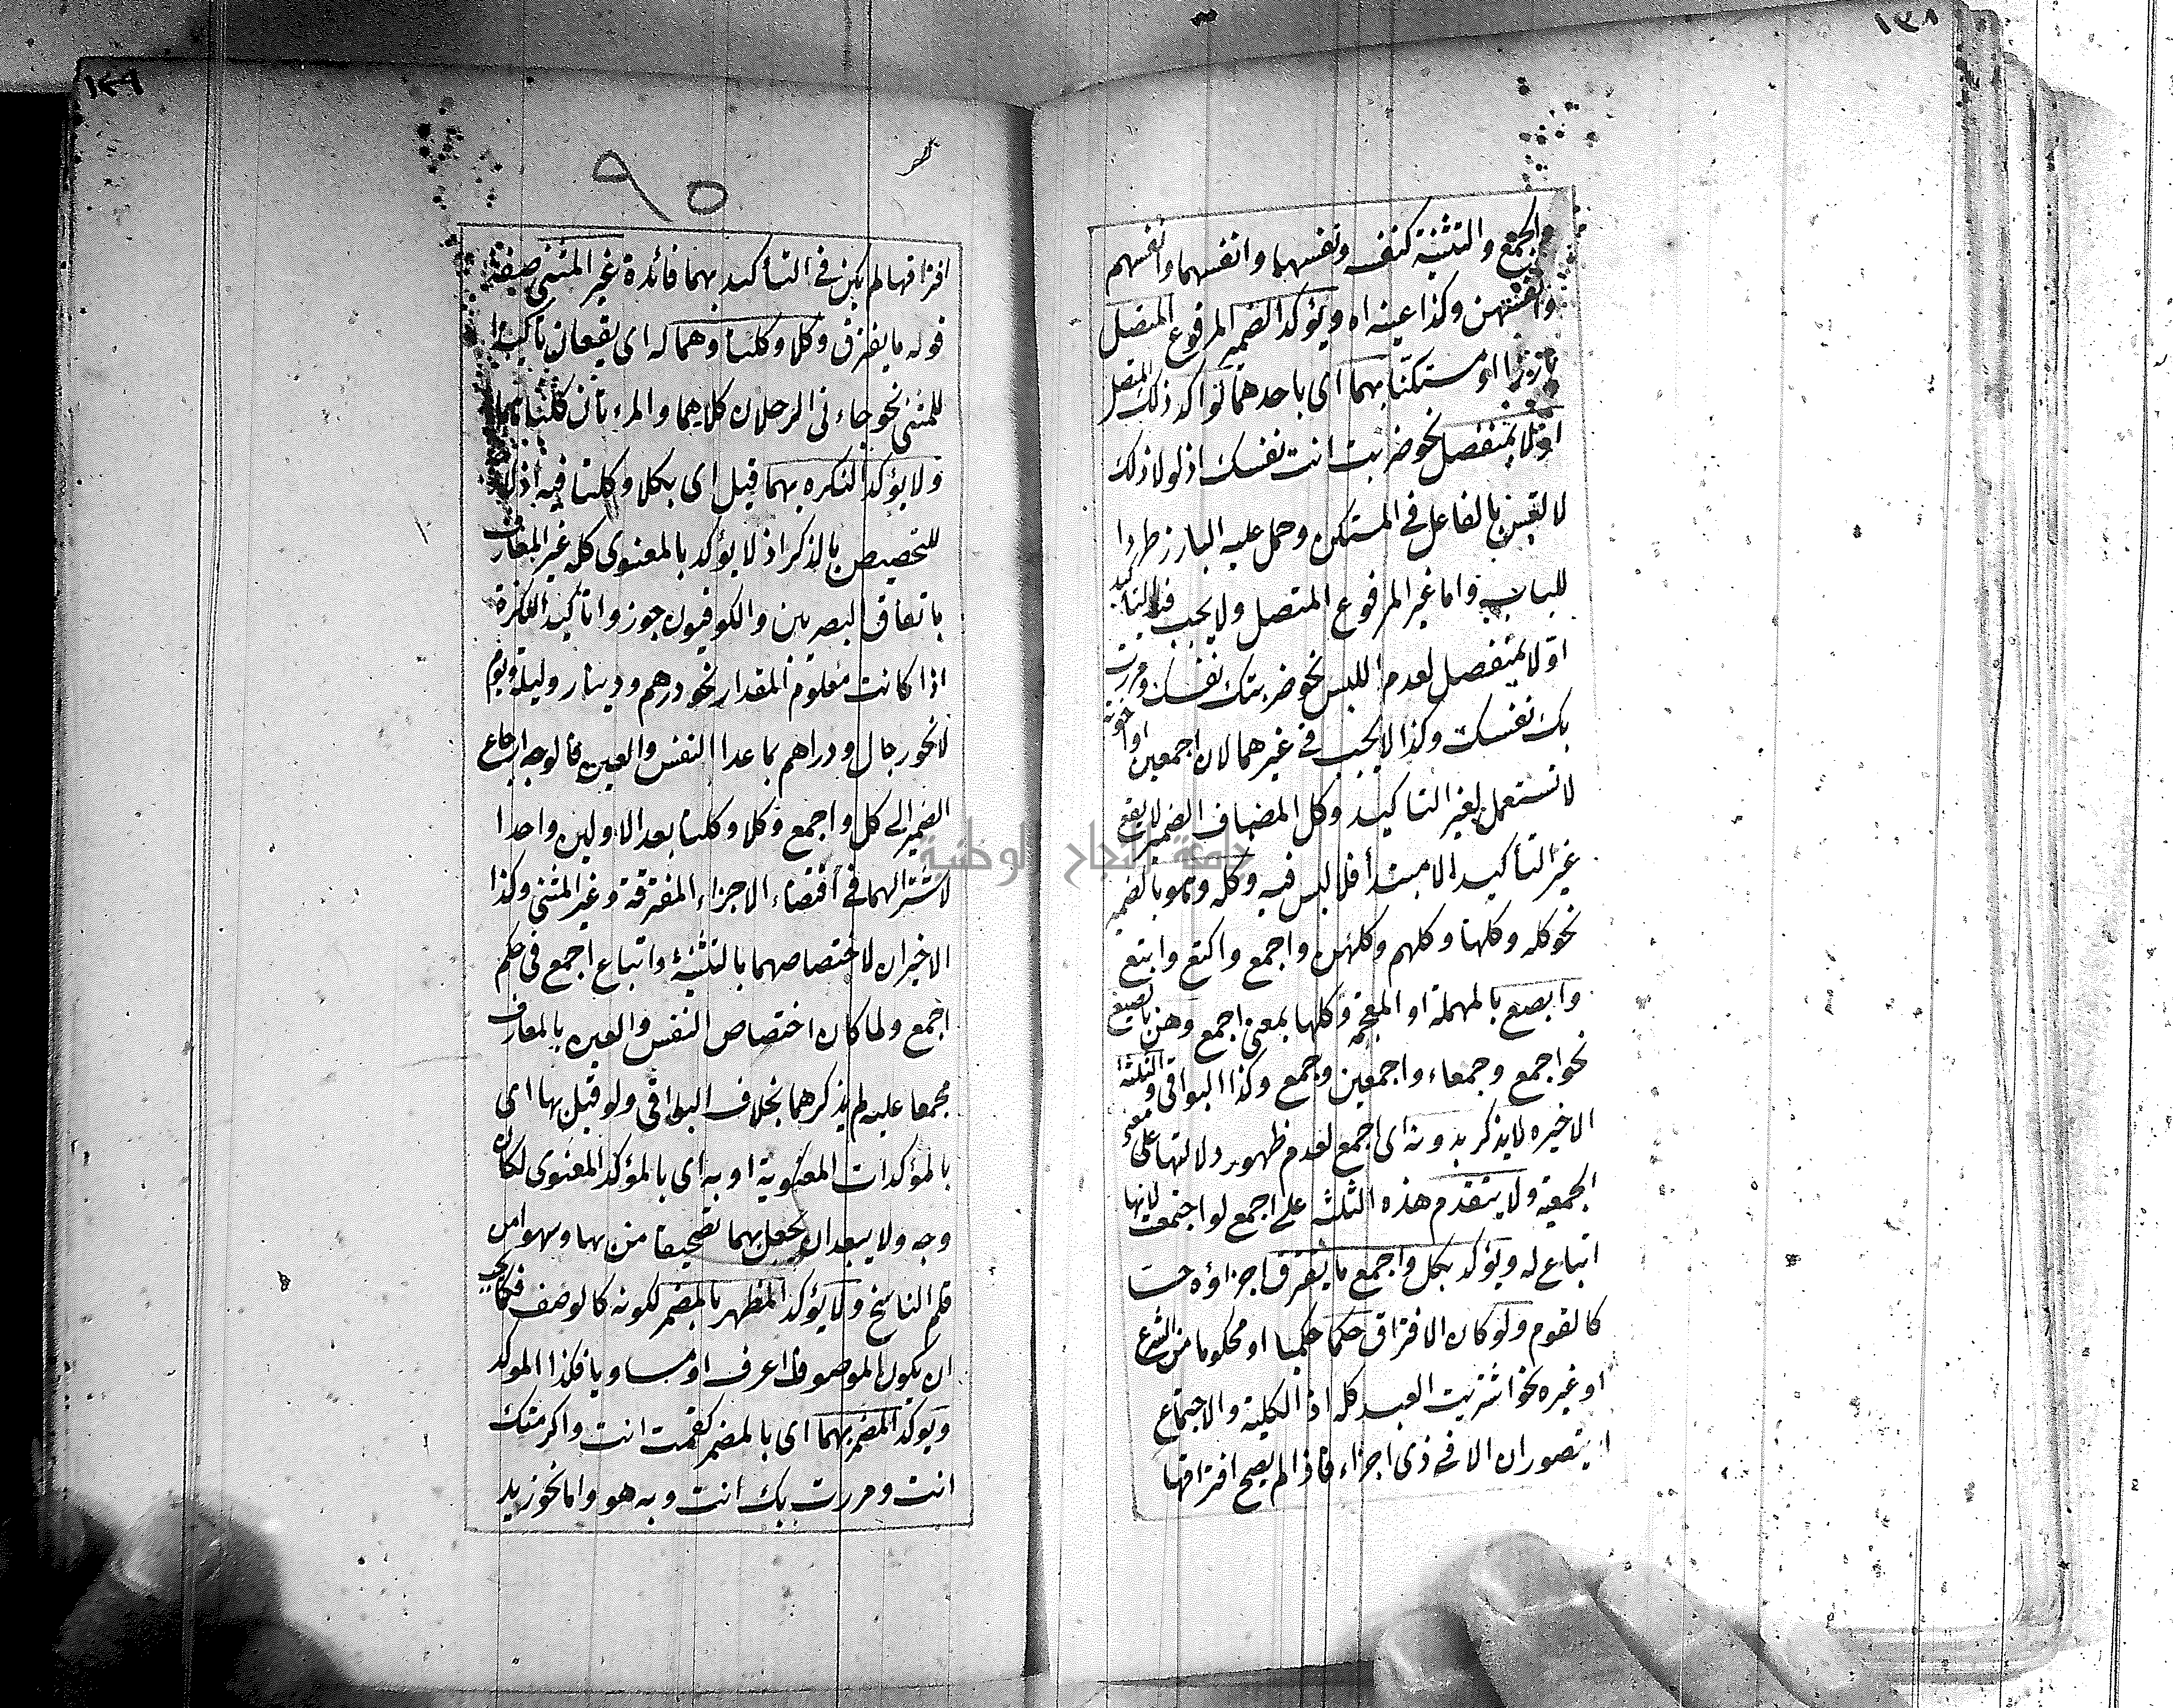 ١٣٨
والجمع والتثنية كنفسه ونفسها وانفسهما وانفسهم
وانفسهن وكذا عينه اه ويؤكد الضمير المرفوع المتصل
بارزا او مستكنا بهما اى باحدهما لو اكد ذلك المتصل
اولا بمنفصل نحو ضربت انت نفسك اذ لولا ذلك
لالتبس بالفاعل في المستكن وحمل عليه البارز طردا
للباب واما غير المرفوع المتصل ولا يجب فيه التأكيد
اولا بمنفصل لعدم اللبس نحو ضربتك نفسك ومررت
بك نفسك وكذا لا يجب في غيرهما لان اجمعين واخوته
لا تستعمل لغير التاكيد وكل المضاف الضمير لا يقع
غير التأكيد الا مبتدأ فلا لبس فيه وكله وهو بالضمير
نحو كله وكلها وكلهم وكلهن واجمع واكتع وابتع
وابصع بالمهملة او المعجمة وكلها بمعنى اجمع وهن بالصيغ
نحو اجمع وجمعاء واجمعين وجمع وكذا البواقى والثلثة
الاخيره لا يذكر بدونه اى اجمع لعدم ظهور دلالتها على معنى
الجمعية ولا يتقدم هذه الثلثه على اجمع لو اجتمعت لانها
اتباع له ويؤكد بكل واجمع ما يفترق اجزاؤه حسا
كالقوم ولو كان الافتراق حكما حكميا او محكوما من الشرع
او غيره نحو اشتريت العبد كله اذ الكلية والاجتماع
لا يتصوران الا في ذى اجزاء فاذا لم يصح افتراقها
١٣٩
٩٥
افتراقها لم يكن في التأكيد بهما فائدة غير المثنى صفة
قوله ما يفترق وكلا وكلتا وهما له اى يقعان تأكيدا
للمثنى نحو جاءنى الرجلان كلاهما والمرءتان كلتاهما
ولا يؤكد النكره بهما قيل اى بكلا وكلتا فيه اذ لا
للتخصيص بالذكر اذ لا يؤكد بالمعنوى كله غير المعارف
باتفاق البصريين والكوفيون جوزوا تأكيد النكرة
اذا كانت معلوم المقدار نحو درهم ودينار وليلة ويوم
لا نحو رجال ودراهم بما عدا النفس والعين فالوجه ارجاع
الضمير الى كل واجمع وكلا وكلتا بعد الاولين واحدا
لاشتراكهما في اقتضاء الاجزاء المفترقة وغير المثنى وكذا
الاخيران لاختصاصهما بالتثنية واتباع اجمع في حكم
اجمع ولما كان اختصاص النفس والعين بالمعارف
مجمعا عليه لم يذكرهما بخلاف البواقى ولو قيل بها اى
بالمؤكدات المعنوية او به اى بالمؤكد المعنوى لكان
وجه ولا يبعد ان يجعل بهما تصحيفا من بها وسهوا من
قلم الناسخ ولا يؤكد المظهر بالمضمر لكونه كالوصف فكما يجب
ان يكون الموصوف اعرف او مساويا فكذا الموكد
ويوكد المضمر بهما اى بالمضمر كقمت انت واكرمتك
انت ومررت بك انت وبه هو واما نحو زيد
جامعة النجاح الوطنية